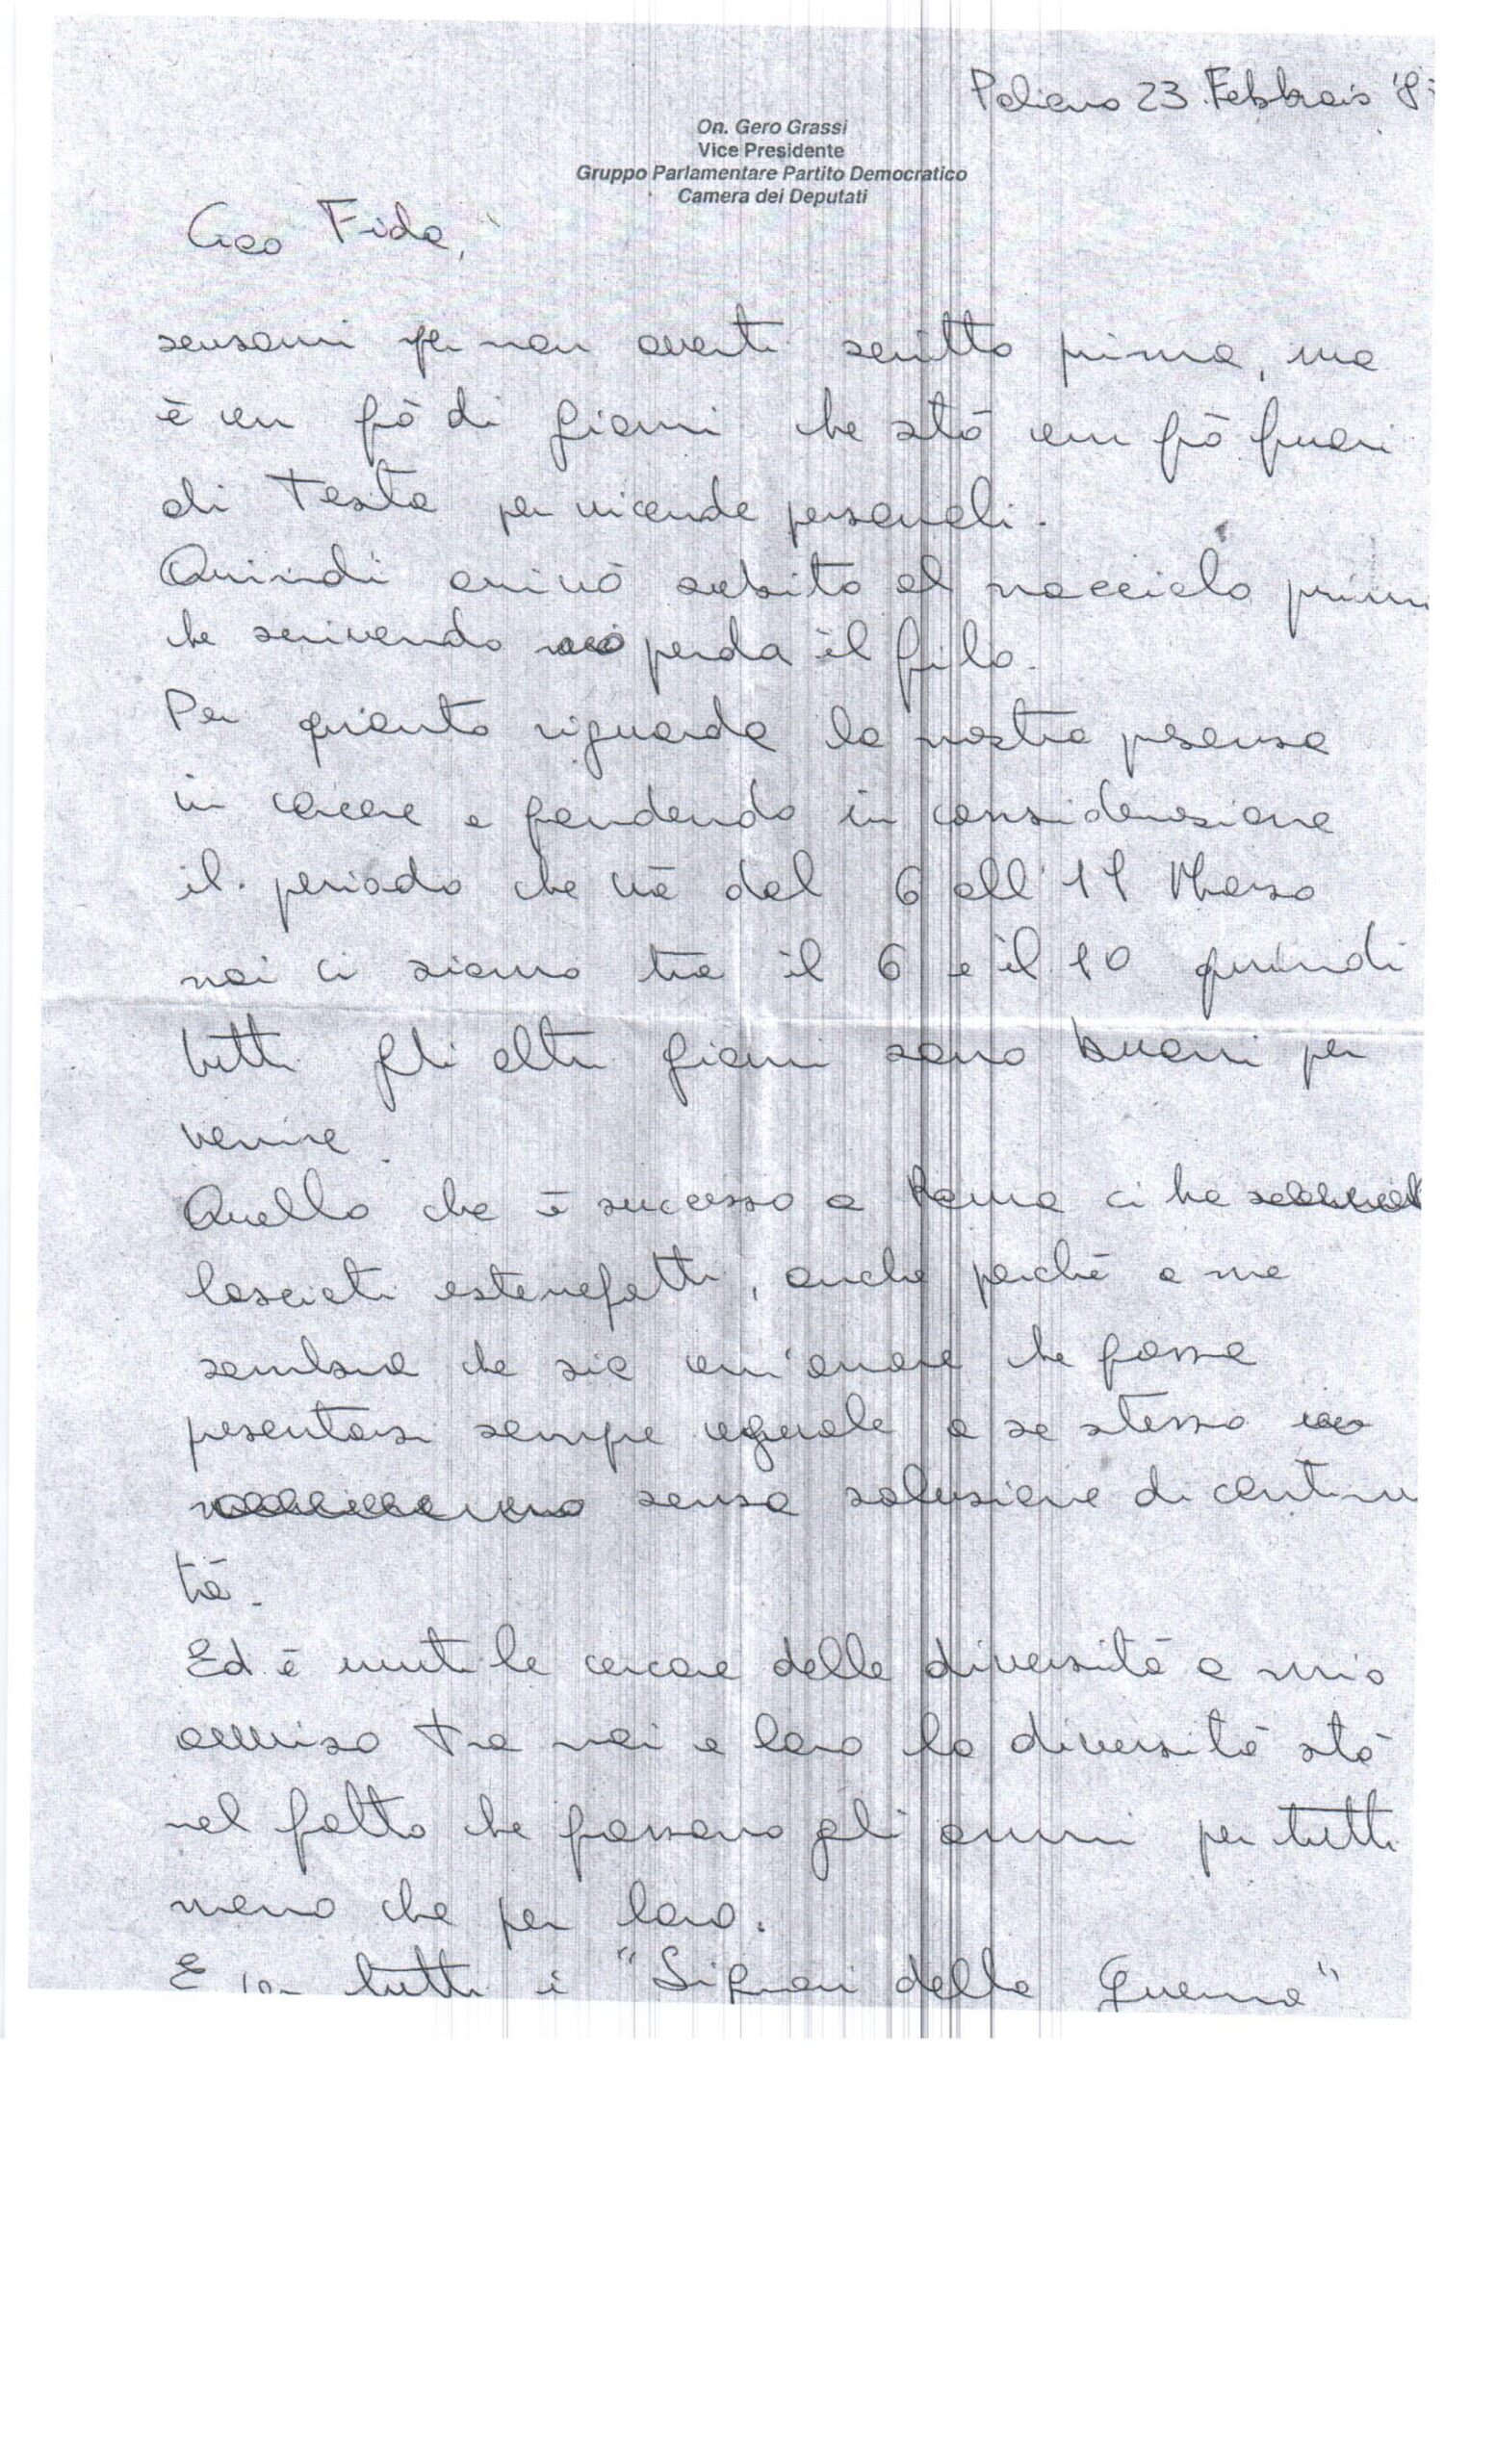 Paliano 23 Febbraio '8
On. Gero Grassi
Vice Presidente
Gruppo Parlamentare Partito Democratico
Camera dei Deputati
Caro Fida,
scusami per non averti scritto prima, ma
è un pò di giorni che stò un pò fuori
di testa per vicende personali.
Quindi arrivò subito al nocciolo prim
che scrivendo perda il filo.
Per quanto riguarda la nostra presenza
in carcere e prendendo in considerazione
il periodo che và dal 6 all' 11 Marzo
noi ci siamo tra il 6 e il 10 quindi
tutti gli altri giorni sono buoni per
venire.
Quello che è successo a Roma ci ha
lasciati esterrefatti, anche perché a me
sembra che sia un'onore che possa
presentarsi sempre uguale a se stesso
senza soluzione di continu
tà.
Ed è inutile cercare delle diversità a mio
avviso tra noi e loro la diversità stà
nel fatto che passano gli anni per tutti
meno che per loro.
E per tutti i "Signori della Guerra"